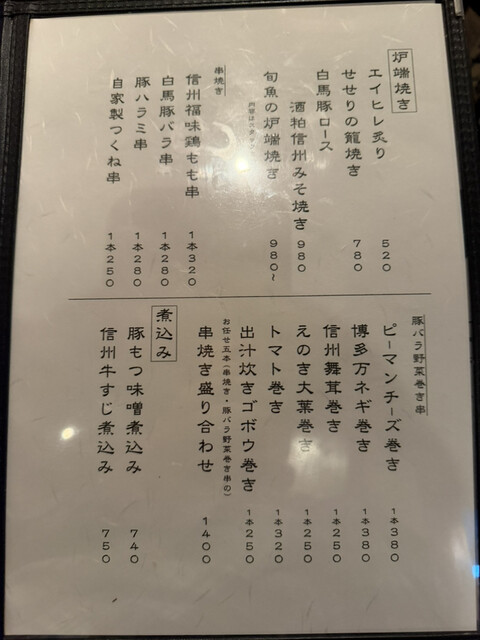 炉端焼き
エイヒレ炙り 520
せせりの籠焼き 780
白馬豚ロース
酒粕信州みそ焼き 980
旬魚の炉端焼き 980〜
串焼き
信州福味鶏もも串 1本320
白馬豚バラ串 1本280
豚ハラミ串 1本280
自家製つくね串 1本250
豚バラ野菜巻き串
ピーマンチーズ巻き 1本380
博多万ネギ巻き 1本380
信州舞茸巻き 1本250
えのき大葉巻き 1本250
トマト巻き 1本320
出汁炊きゴボウ巻き 1本250
お任せ五本(串焼き・豚バラ野菜巻き串の)
串焼き盛り合わせ 1400
煮込み
豚もつ味噌煮込み 740
信州牛すじ煮込み 750